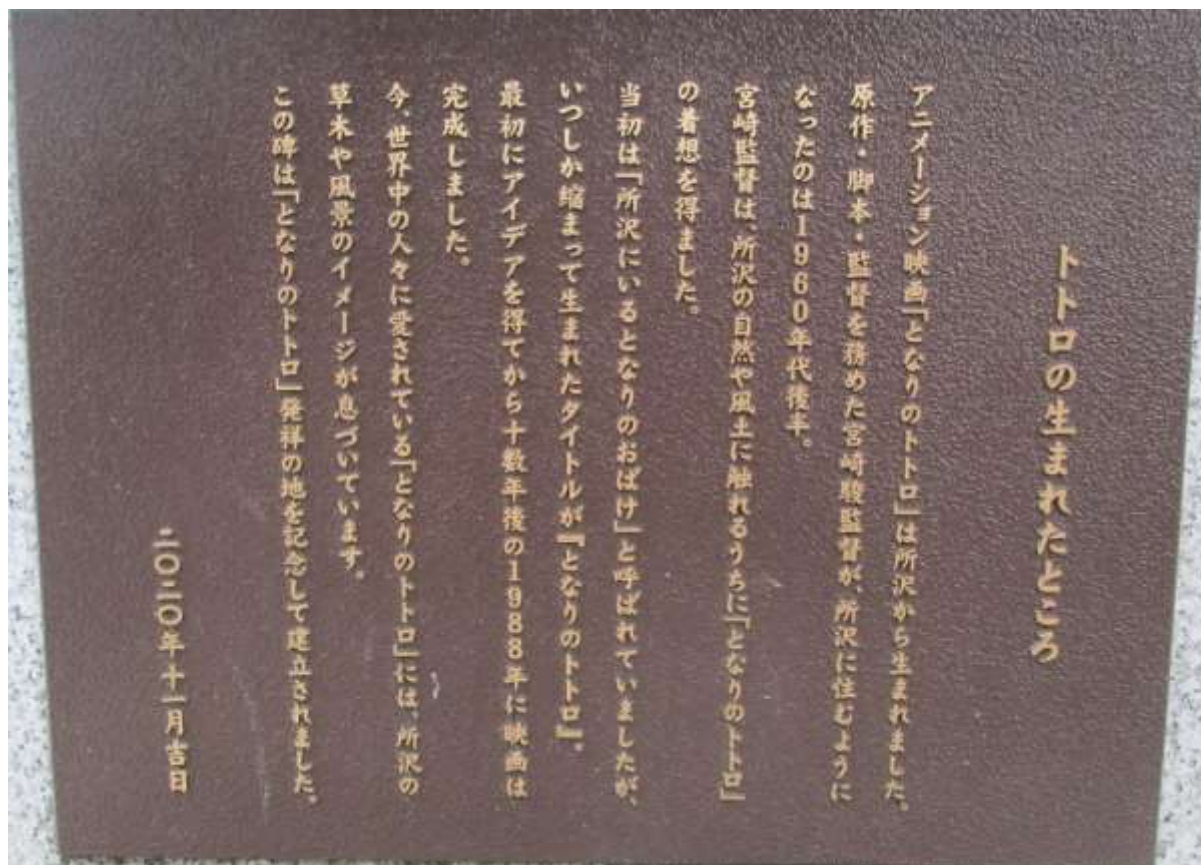 トトロの生まれたところ
アニメーション映画「となりのトトロ」は所沢から生まれました。
原作・脚本・監督を務めた宮崎駿監督が、所沢に住むように
なったのは1960年代後半。
宮崎監督は、所沢の自然や風土に触れるうちに「となりのトトロ」
の着想を得ました。
当初は「所沢にいるとなりのおばけ」と呼ばれていましたが、
いつしか縮まって生まれたタイトルが『となりのトトロ』。
最初にアイデアを得てから十数年後の1988年に映画は
完成しました。
今、世界中の人々に愛されている「となりのトトロ」には、所沢の
草木や風景のイメージが息づいています。
この碑は「となりのトトロ」発祥の地を記念して建立されました。
二〇二〇年十一月吉日